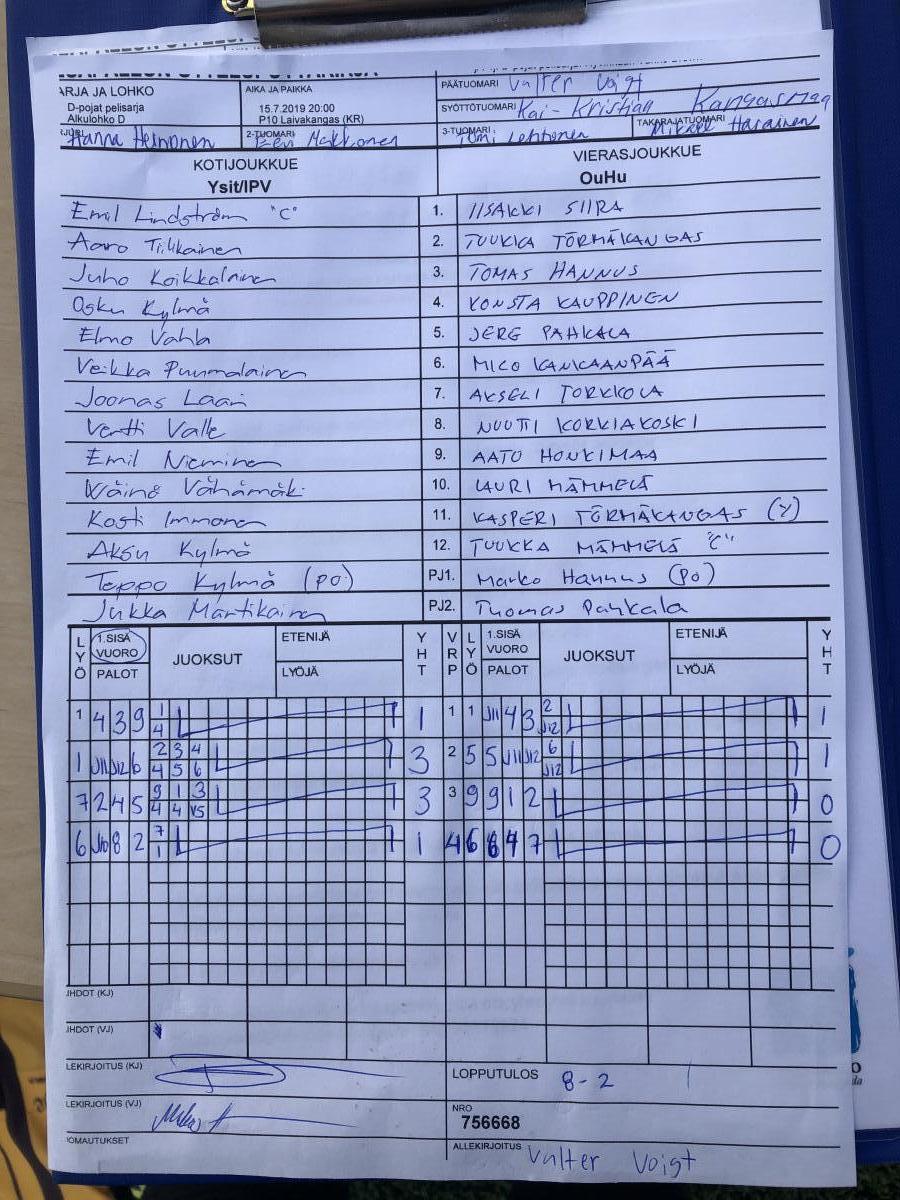 ARJA JA LOHKO
D-pojat pelisarja
Alkulohko D
AIKA JA PAIKKA
15.7.2019 20:00
P10 Laivakangas (KR)
PÄÄTUOMARI Valter Voigt
SYÖTTÖTUOMARI Kai-Kristian Kangasmaa
Hanna Heinonen
2-TUOMARI Eevi Makkonen
3-TUOMARI Tomi Lehtonen
TAKARAJATUOMARI Mikael Harainen
KOTIJOUKKUE
Ysit/IPV
VIERASJOUKKUE
OuHu
Emil Lindström "C" 1. IISAKKI SIIRA
Aaro Tiihkainen 2. TUUKKA TÖRMÄKANGAS
Juho Koikkalainen 3. TOMAS HANNUS
Osku Kylmä 4. KONSTA KAUPPINEN
Elmo Vahla 5. JERE PAHKALA
Veikka Puumalainen 6. MICO KANKAANPÄÄ
Joonas Laari 7. AKSELI TORKKOLA
Vertti Valle 8. NUUTTI KORKIAKOSKI
Emil Nieminen 9. AATO HONKIMAA
Wäinö Vähämäki 10. LAURI MÄMMELÄ
Kosti Immonen 11. KASPERI TÖRMÄKANGAS (Y)
Aksu Kylmä 12. TUUKKA MÄMMELÄ "C"
Teppo Kylmä (PO) PJ1. Marko Hannus (PO)
Jukka Martikainen PJ2. Tuomas Pahkala
LYÖ 1.SISÄ VUORO PALOT JUOKSUT ETENIJÄ LYÖJÄ YHT VRP LYÖ 1.SISÄ VUORO PALOT JUOKSUT ETENIJÄ LYÖJÄ YHT
1 4 3 9 1 1 1 1 J11 4 3 2 1
4 J12
1 J11 J12 6 2 3 4 3 2 5 5 J11 J12 6 1
4 5 6 J12
7 2 4 5 9 1 3 3 3 9 9 1 2 0
4 4 V5
6 J10 8 2 7 1 4 6 6 8 4 7 0
1
IHDOT (KJ)
IHDOT (VJ)
LEKIRJOITUS (KJ)
LOPPUTULOS 8-2
LEKIRJOITUS (VJ)
NRO
756668
IOMAUTUKSET
ALLEKIRJOITUS Valter Voigt